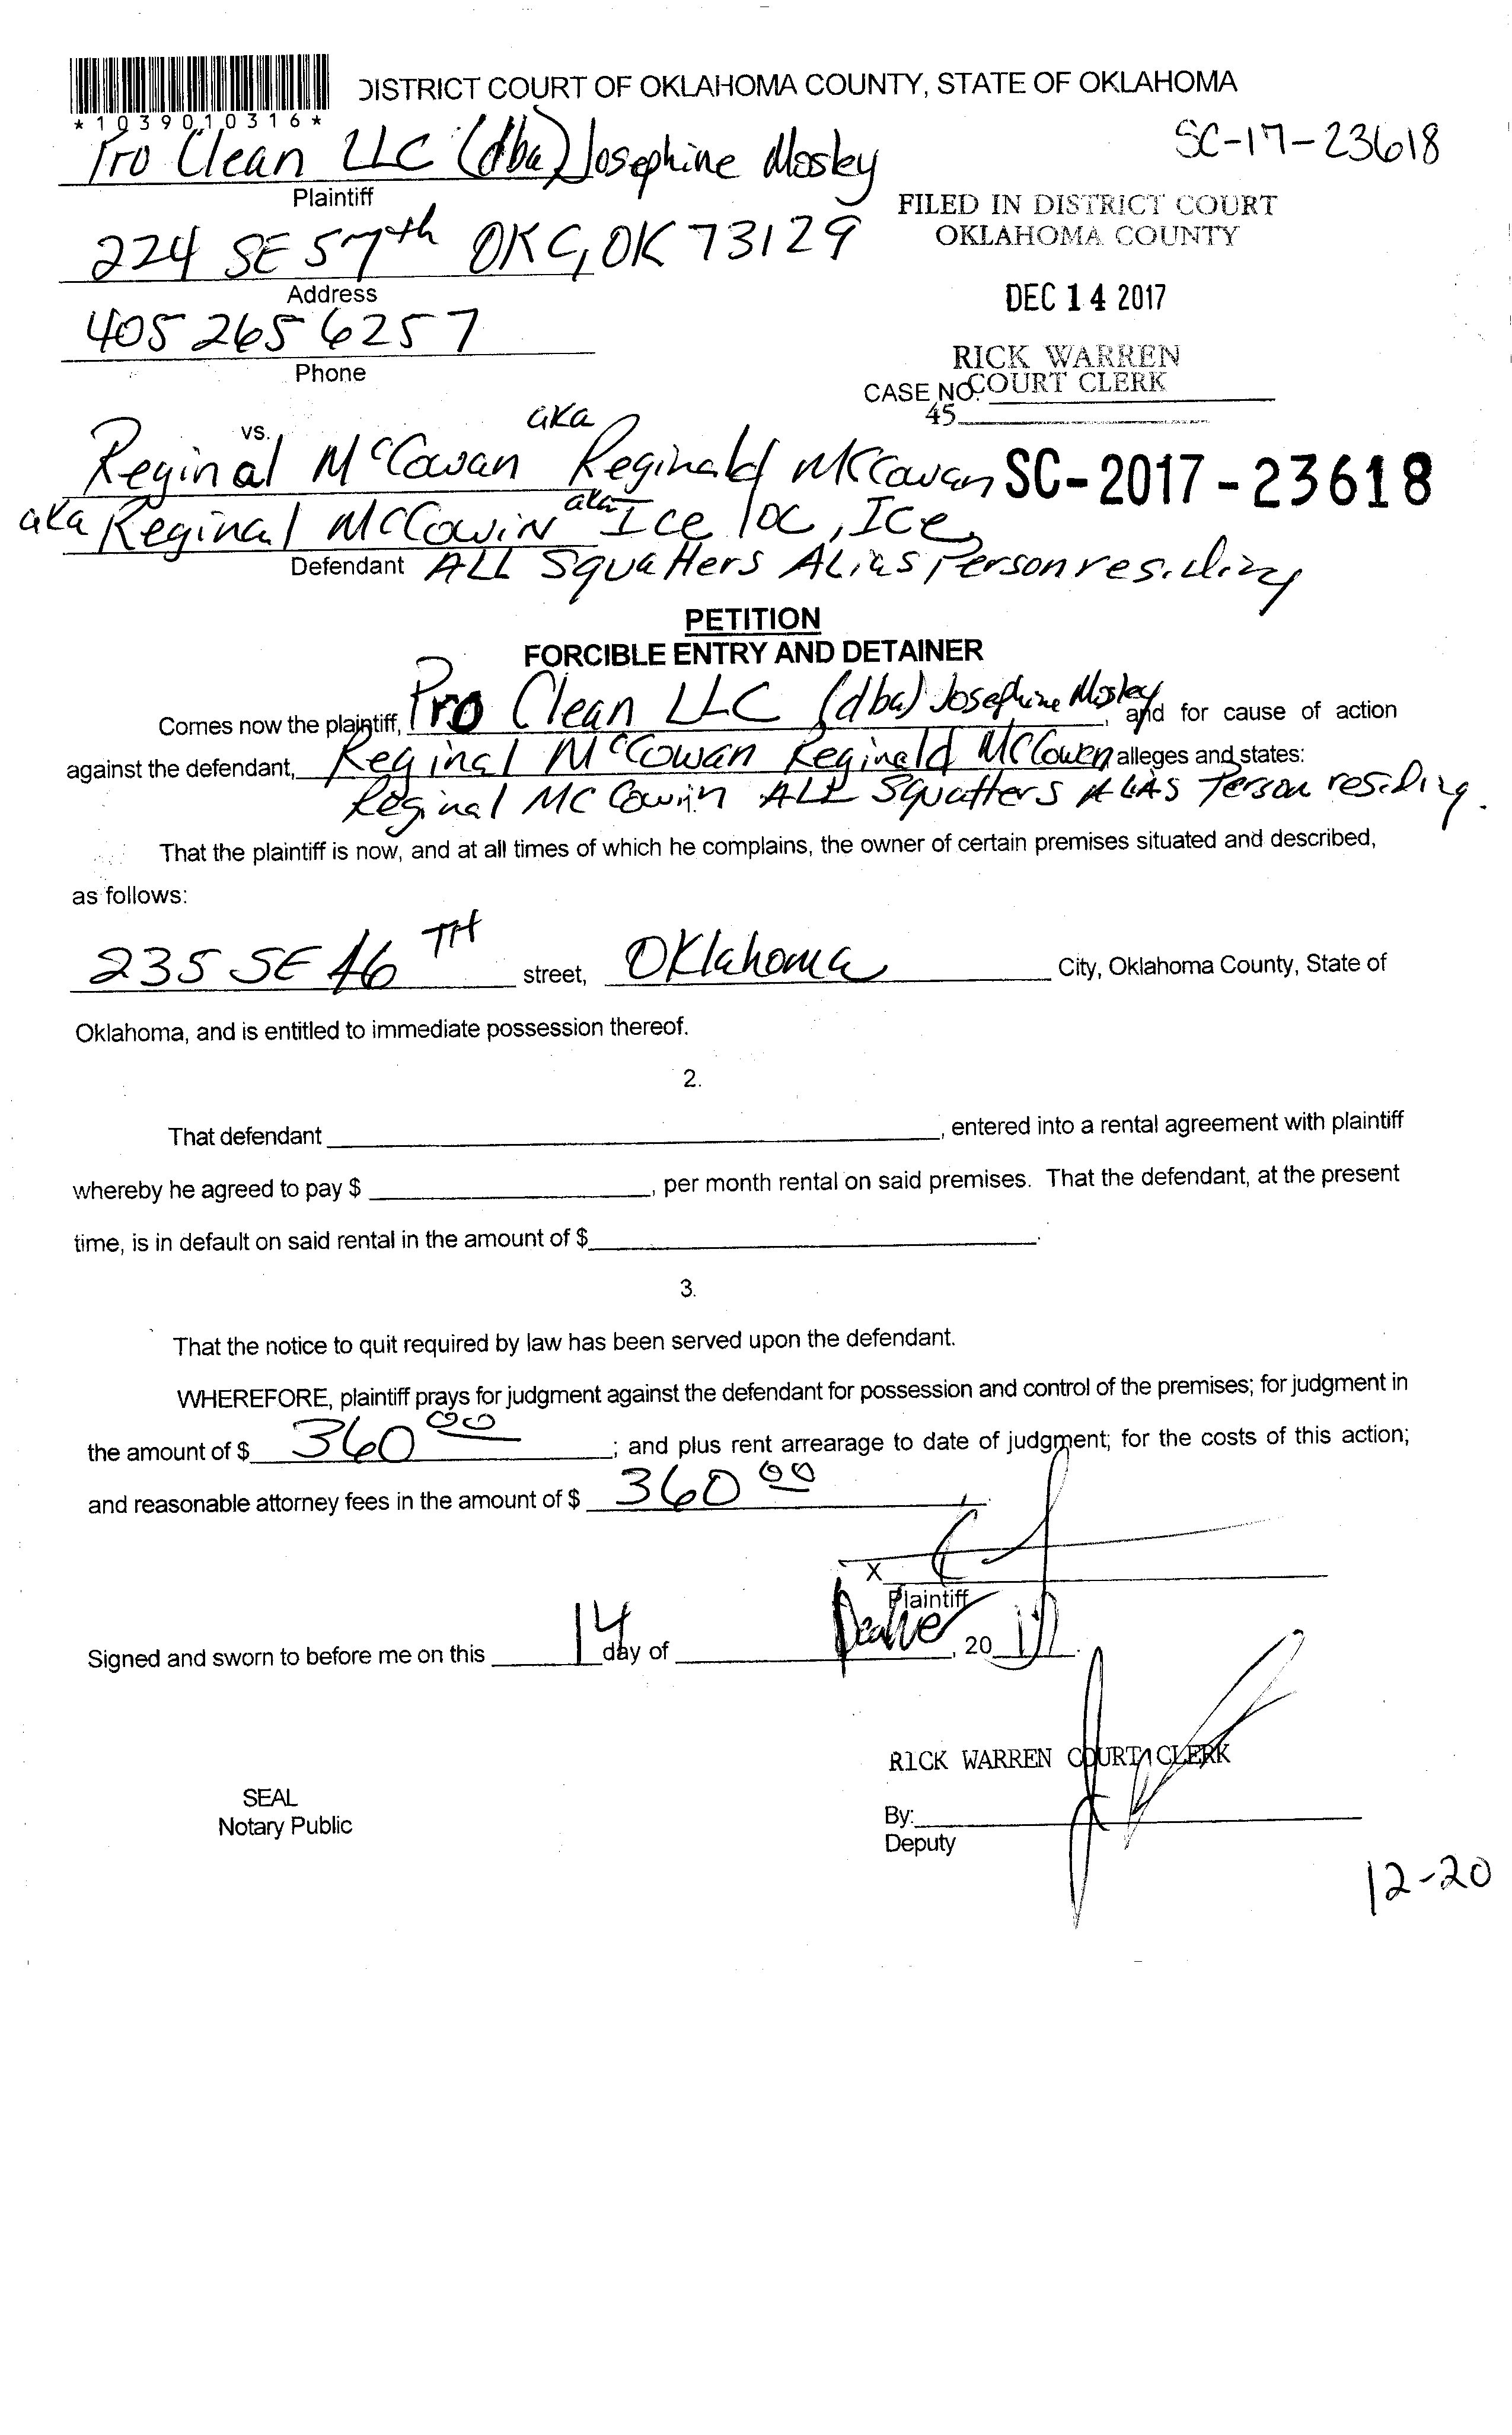 DISTRICT COURT OF OKLAHOMA COUNTY, STATE OF OKLAHOMA
*1039010316*
SC-17-23618
Pro Clean LLC (dba) Josephine Mosley
Plaintiff
FILED IN DISTRICT COURT
OKLAHOMA COUNTY
224 SE 57th OKC, OK 73129
Address
DEC 14 2017
405 265 6257
Phone
RICK WARREN
COURT CLERK
CASE NO.
45
vs.
aka
Reginal McCowan Reginald McCowan
SC-2017-23618
aka Reginal McCowin aka Ice Loc, Ice,
Defendant ALL Squatters Alias Person residing
PETITION
FORCIBLE ENTRY AND DETAINER
Comes now the plaintiff, Pro Clean LLC (dba) Josephine Mosley, and for cause of action
against the defendant, Reginal McCowan Reginald McCowen alleges and states:
Reginal McCowin ALL Squatters ALIAS Person residing.
That the plaintiff is now, and at all times of which he complains, the owner of certain premises situated and described,
as follows:
235 SE 46 TH street, Oklahoma City, Oklahoma County, State of
Oklahoma, and is entitled to immediate possession thereof.
2.
That defendant , entered into a rental agreement with plaintiff
whereby he agreed to pay $ , per month rental on said premises. That the defendant, at the present
time, is in default on said rental in the amount of $ .
3.
That the notice to quit required by law has been served upon the defendant.
WHEREFORE, plaintiff prays for judgment against the defendant for possession and control of the premises; for judgment in
the amount of $ 360 00 ; and plus rent arrearage to date of judgment; for the costs of this action;
and reasonable attorney fees in the amount of $ 360 00
X
Plaintiff
Signed and sworn to before me on this 14 day of , 20 17.
RICK WARREN COURT CLERK
SEAL
Notary Public
By:
Deputy
12-20